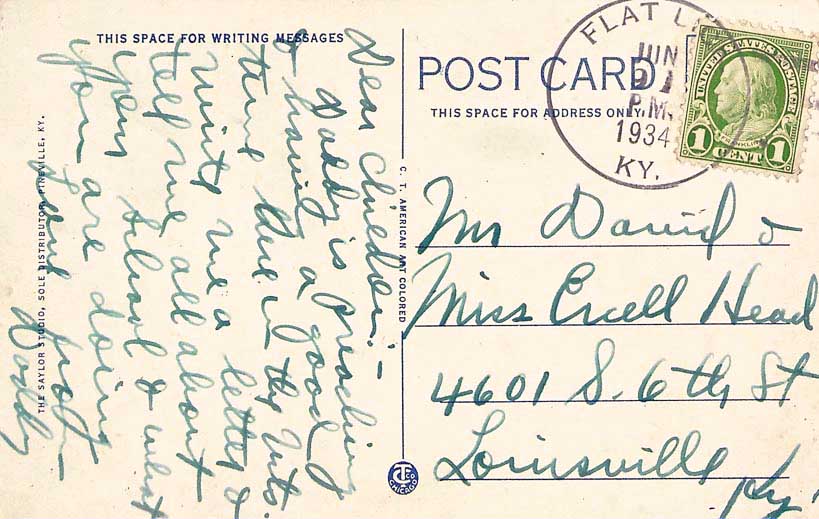 THIS SPACE FOR WRITING MESSAGES
Dear children:-
Daddy is preaching
& having a good
time here in the Mts.
Write me a letter &
tell me all about
your school & what
you are doing
Love from
Daddy
THE SAYLOR STUDIO, SOLE DISTRIBUTOR, PINEVILLE, KY.
C. T. AMERICAN ART COLORED
C T CO
CHICAGO
POST CARD
THIS SPACE FOR ADDRESS ONLY
FLAT LI
JUN
21
P.M.
1934
KY.
UNITED STATES POSTAGE
FRANKLIN
1 CENT 1
Mr David &
Miss Excell Head
4601 S. 6th St
Louisville
Ky.